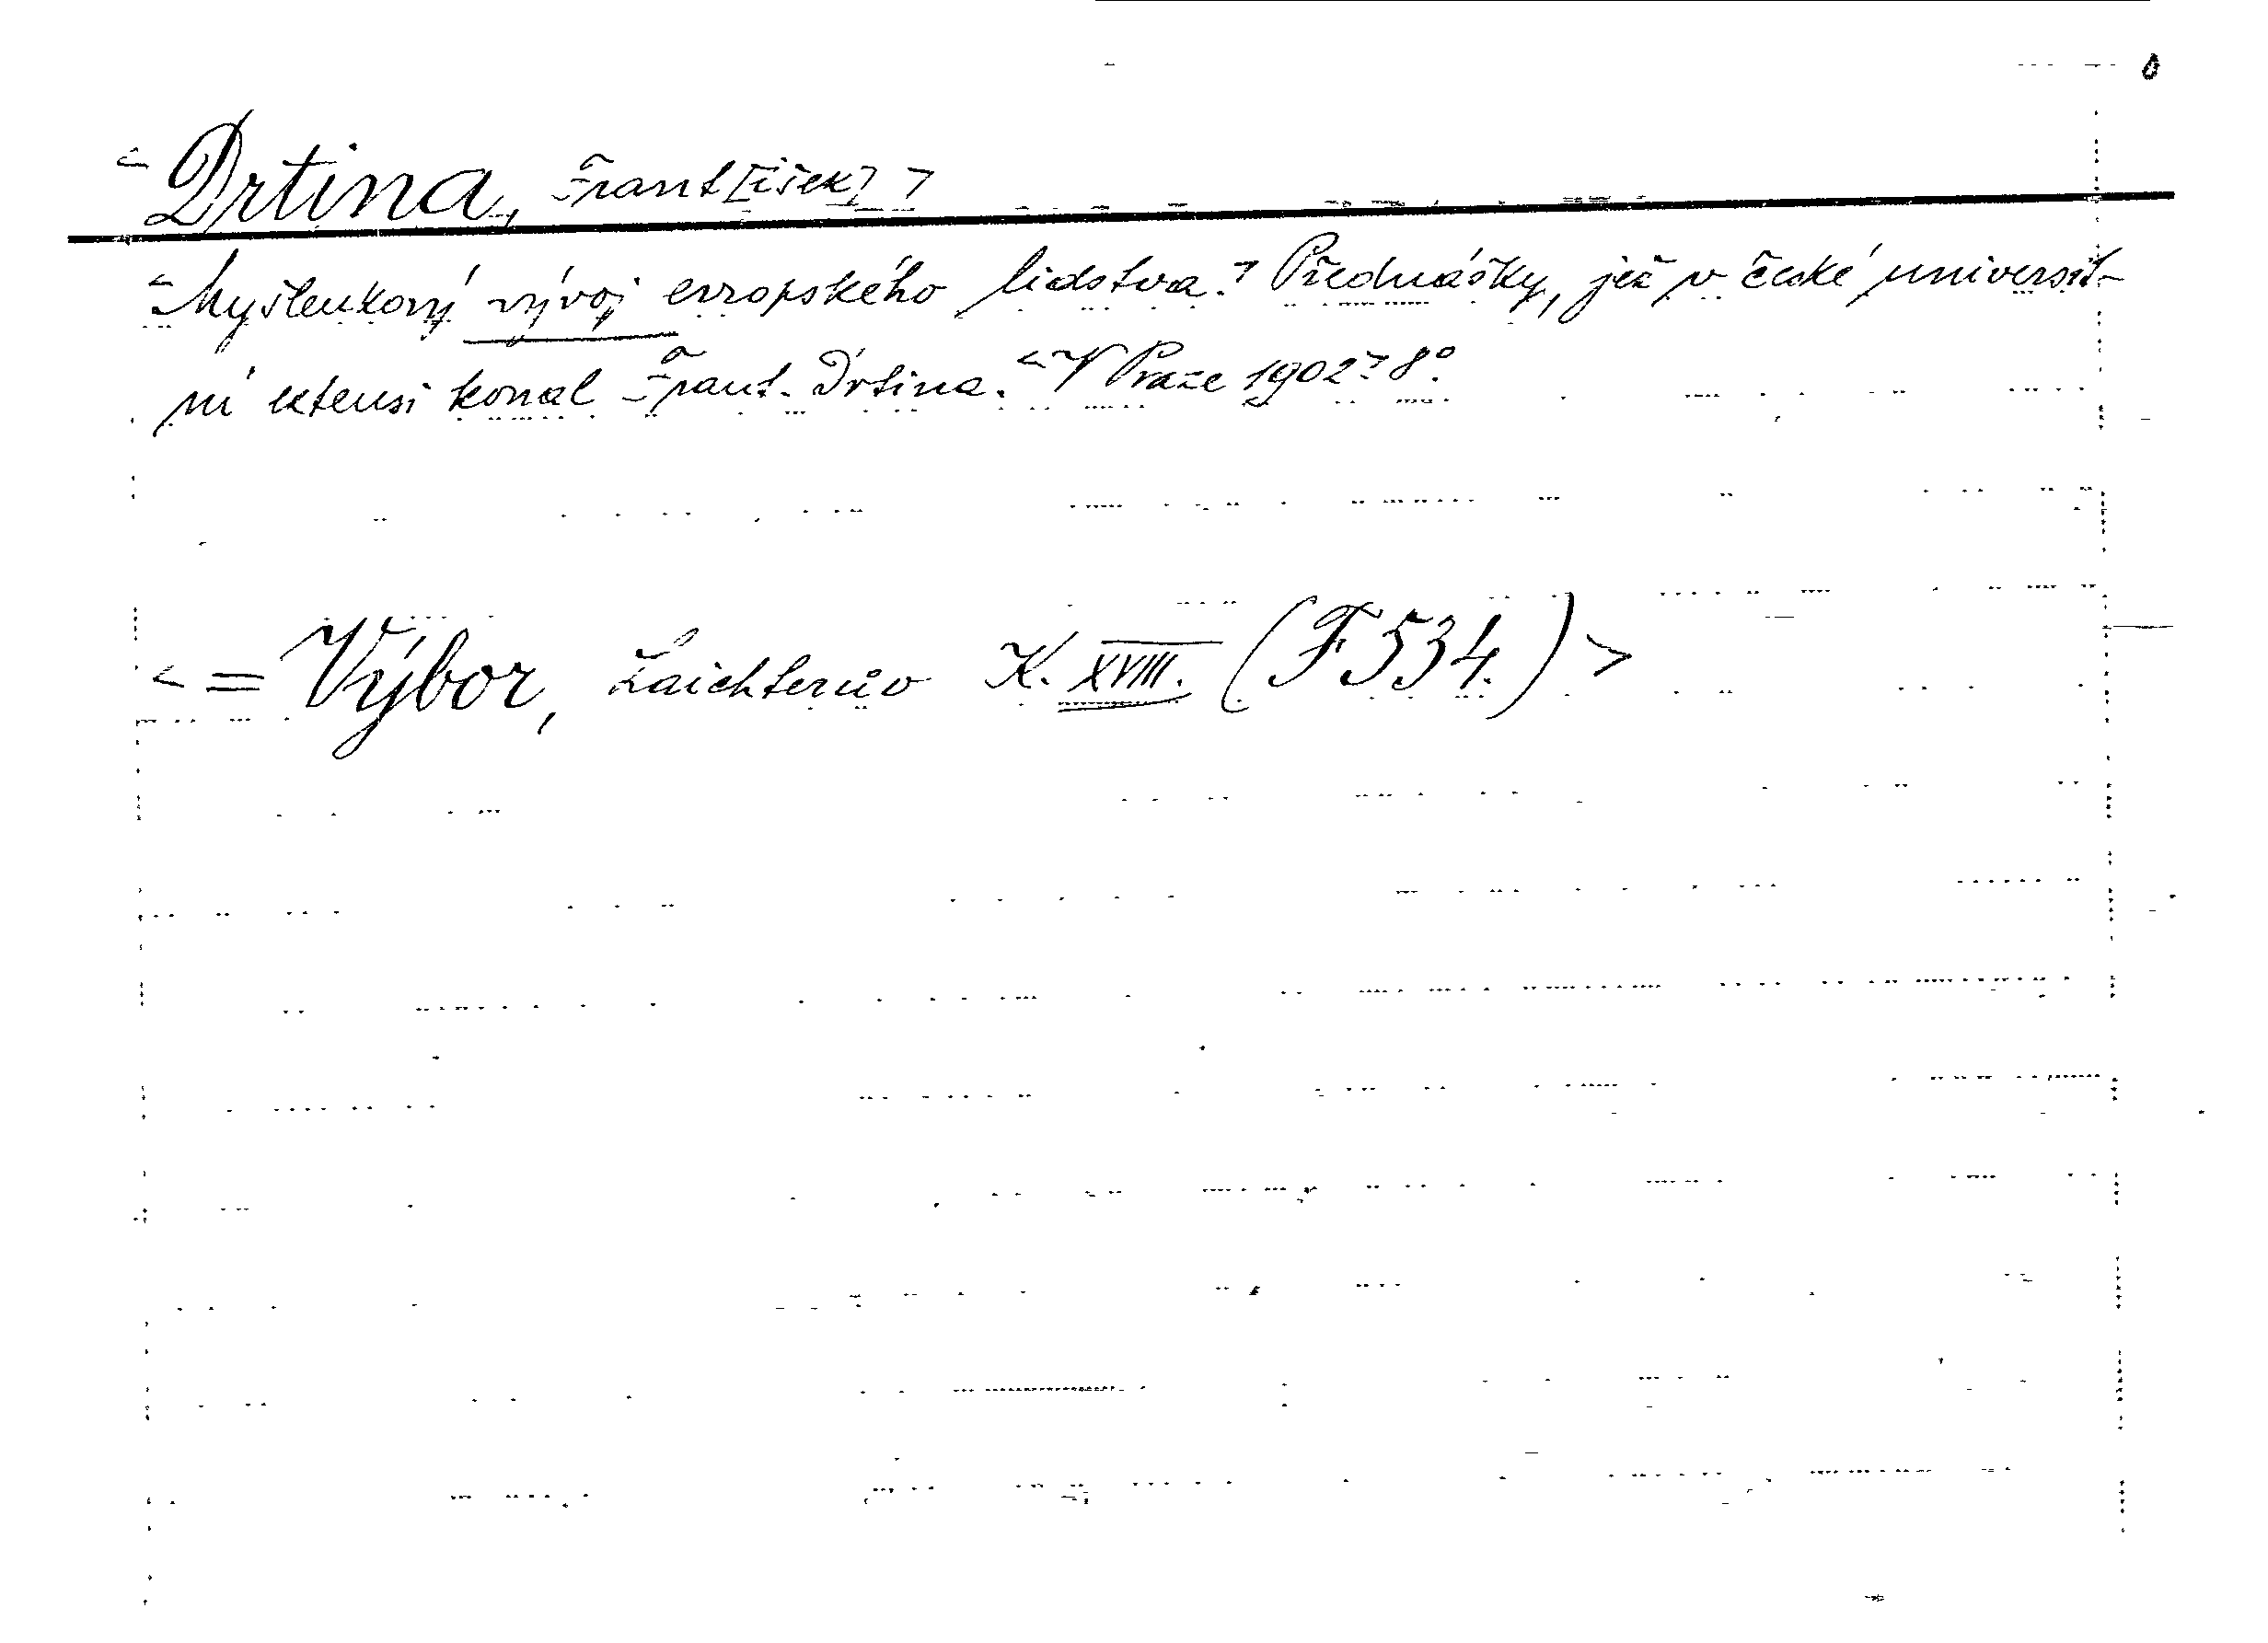 <Drtina, Frant[išek]>
<Myšlenkový vývoj evropského lidstva.> Přednášky, jež v české universit-
ní extensi konal Frant. Drtina. <V Praze 1902> 8°.
<= Výbor, Laichterův K. XVIII. (F 534.)>